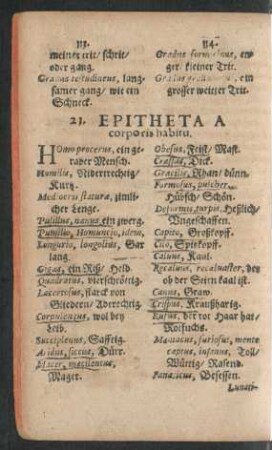 113.
meiner trit/ schrit/
oder gang.
Gradus testudineus, lang-
samer gang/ wie ein
Schneck.
114.
Gradus, en-
ger kleiner Trit.
ein
grosser weitter Trit.
21. EPITHETA A
corporis habitu.
Homo procerus, ein ge-
rader Mensch.
Humilis, Nidertrechtig/
Kurtz.
Mediocris staturæ, zimli-
cher Lenge.
Pusillus, nanus, ein zwerg.
Pumilio, Homuncio, idem.
Longurio, longulius, Gar
lang.
Gigas, ein Risß/ Held.
Quadratus, vierschrötig.
Lacertosus, starck von
Gliedern/ Aderechtig.
Corpulentus, wol bey
Leib.
Succiplenus, Safftig.
Aridus, siccus, Dürr.
Macer, macilentus,
Mager.
Obesus, Feist/ Mast.
Crassus, Dick.
Gracilis, Rhan/ dünn.
Formosus, pulcher,
Hübsch/ Schön.
Deformis, turpis, Heßlich/
Ungeschaffen.
Capito, Großkopff.
Cilo, Spitzkopff.
Calvus, Kaal.
Recalvus, recalvaster, der
ob der Stirn kaal ist.
Canus, Graw.
Crispus, Kraußharig.
Rufus, der rot Haar hat/
Rotfuchs.
Maniacus, furiosus, mente
captus, insanus, Toll/
Wütig/ Rasend.
Fanaticus, Besessen.
Lunati-